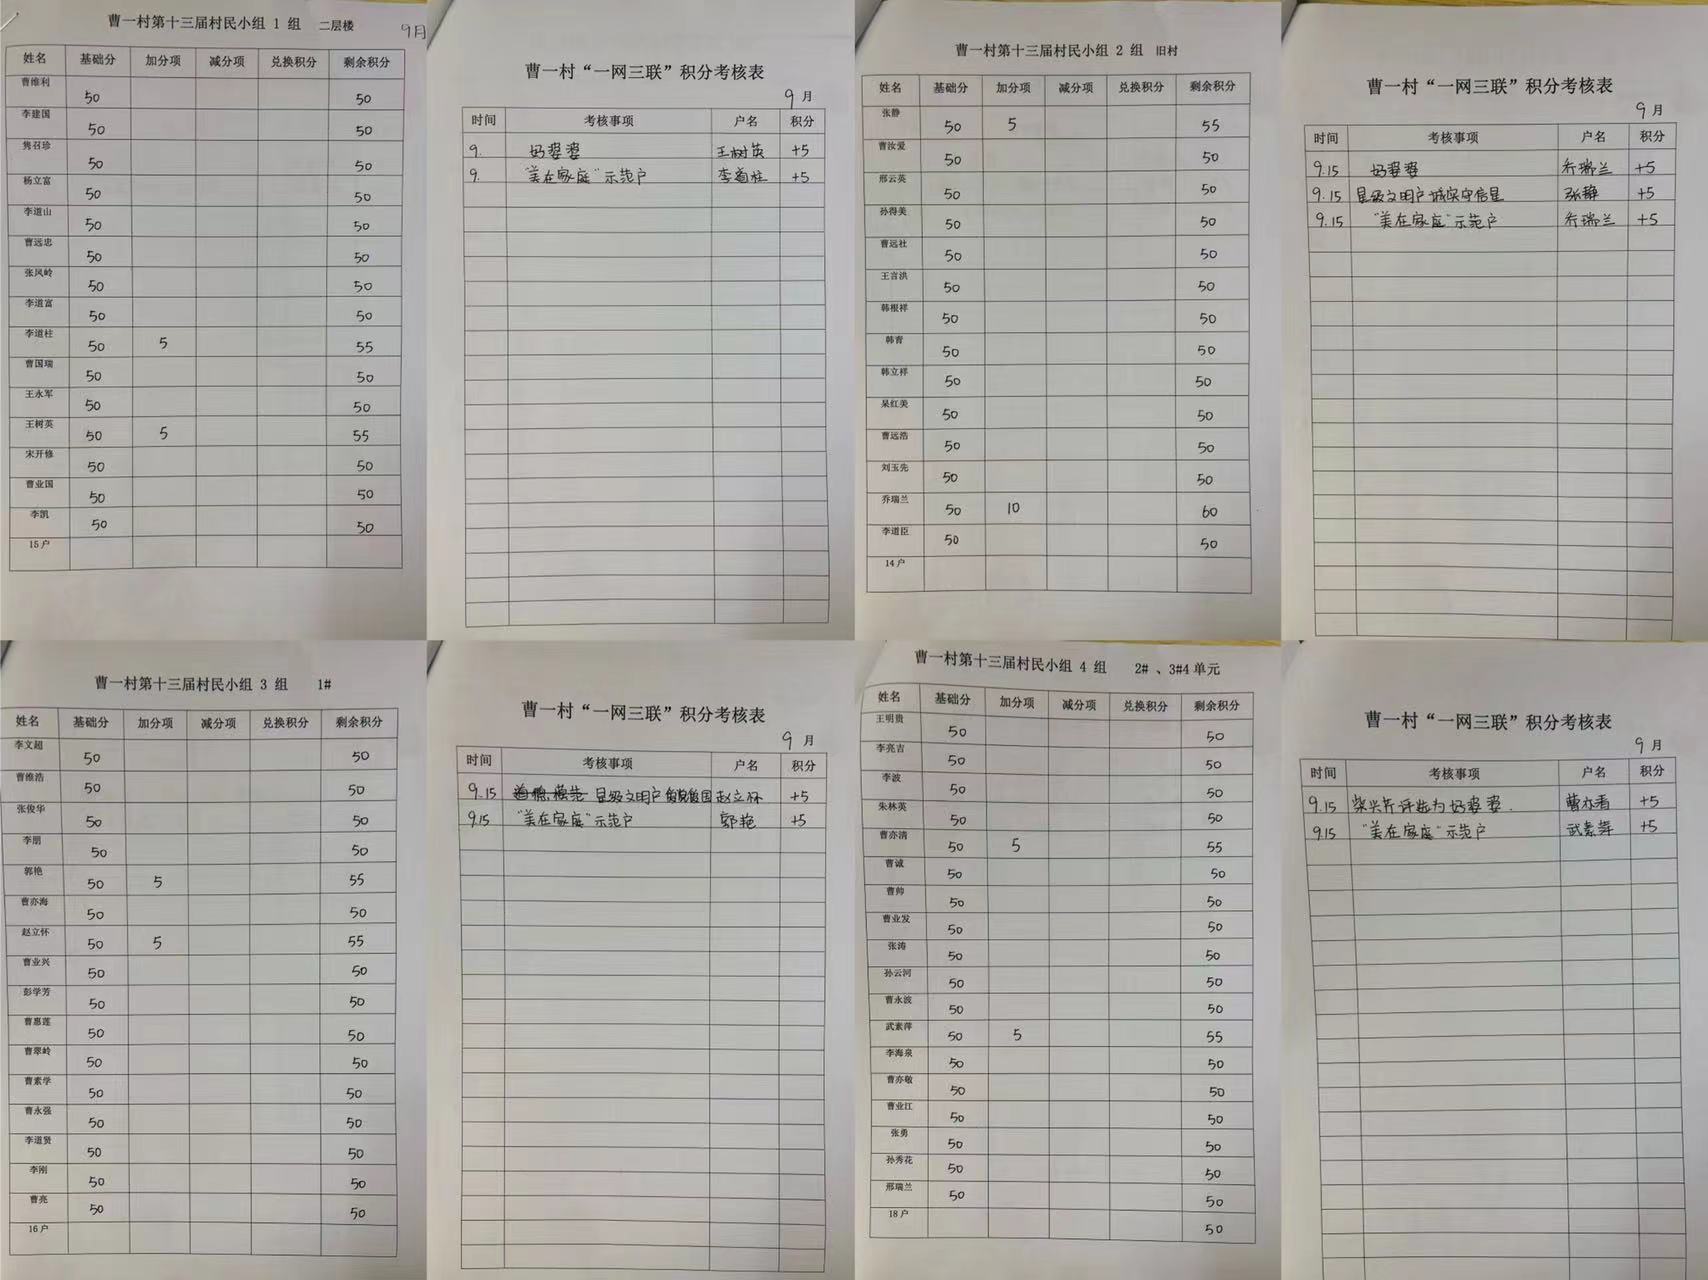 曹一村第十三届村民小组 1 组 二层楼 9月
姓名 基础分 加分项 减分项 兑换积分 剩余积分
曹维利 50 50
李建国 50 50
隽召珍 50 50
杨立富 50 50
李道山 50 50
曹远忠 50 50
张风岭 50 50
李道富 50 50
李道柱 50 5 55
曹国瑞 50 50
王永军 50 50
王树英 50 5 55
宋开修 50 50
曹业国 50 50
李凯 50 50
15户
曹一村“一网三联”积分考核表
9 月
时间 考核事项 户名 积分
9. 好婆婆 王树英 +5
9. “美在家庭”示范户 李道柱 +5
曹一村第十三届村民小组 2 组 旧村
姓名 基础分 加分项 减分项 兑换积分 剩余积分
张静 50 5 55
曹汝爱 50 50
邢云英 50 50
孙得美 50 50
曹远社 50 50
王言洪 50 50
韩根祥 50 50
韩青 50 50
韩立祥 50 50
杲红美 50 50
曹远浩 50 50
刘玉先 50 50
乔瑞兰 50 10 60
李道臣 50 50
14户
曹一村“一网三联”积分考核表
9 月
时间 考核事项 户名 积分
9.15 好婆婆 乔瑞兰 +5
9.15 星级文明户诚实守信星 张静 +5
9.15 “美在家庭”示范户 乔瑞兰 +5
曹一村第十三届村民小组 3 组 1#
姓名 基础分 加分项 减分项 兑换积分 剩余积分
李文超 50 50
曹维浩 50 50
张俊华 50 50
李朋 50 50
郭艳 50 5 55
曹亦海 50 50
赵立怀 50 5 55
曹业兴 50 50
彭学芳 50 50
曹惠莲 50 50
曹翠岭 50 50
曹素学 50 50
曹永强 50 50
李道贤 50 50
李刚 50 50
曹亮 50 50
16户
曹一村“一网三联”积分考核表
9 月
时间 考核事项 户名 积分
9.15 道德模范 星级文明户 赵立怀 +5
9.15 “美在家庭”示范户 郭艳 +5
曹一村第十三届村民小组 4 组 2# 、3#4单元
姓名 基础分 加分项 减分项 兑换积分 剩余积分
王明贵 50 50
李亮吉 50 50
李波 50 50
朱林英 50 50
曹亦清 50 5 55
曹诚 50 50
曹帅 50 50
曹业发 50 50
张涛 50 50
孙云河 50 50
曹永波 50 50
武素萍 50 5 55
李海泉 50 50
曹亦敬 50 50
曹业江 50 50
张勇 50 50
孙秀花 50 50
邢瑞兰 50 50
18户 50
曹一村“一网三联”积分考核表
9 月
时间 考核事项 户名 积分
9.15 柴兴芹评选为好婆婆. 曹亦清 +5
9.15 “美在家庭”示范户 武素萍 +5